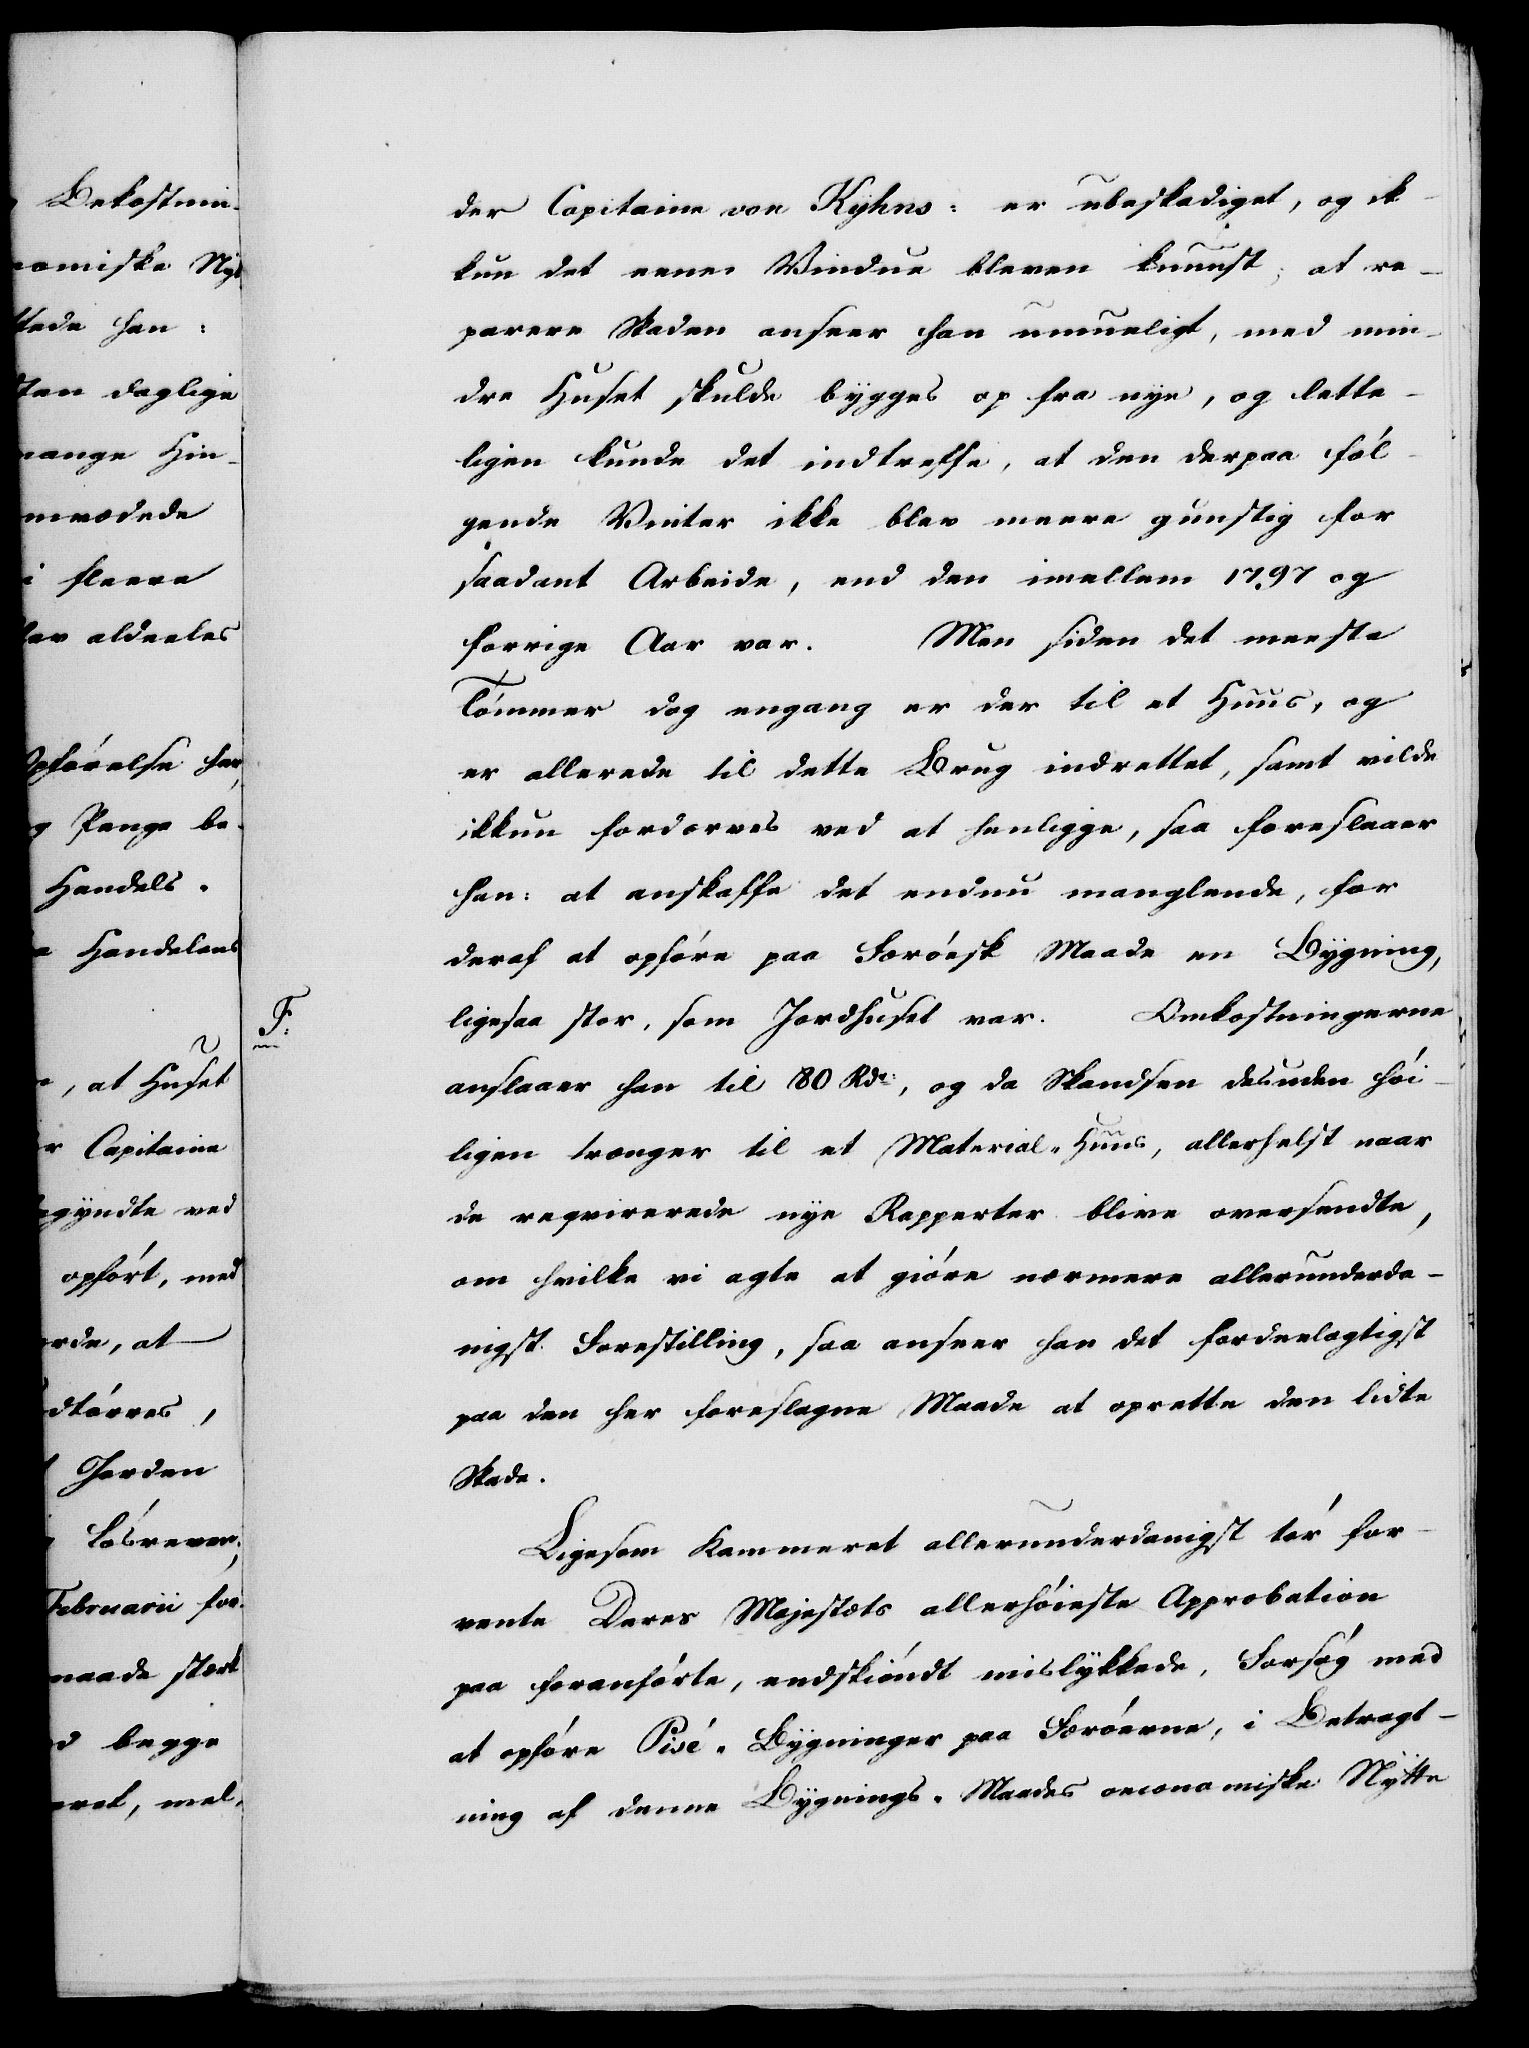 Bekostnin-
nomiske Nyt
ttede han:
sten daglige
mange Hin-
i fleere
lev aldeeles
Opførelse her,
og Penge be-
Handels-
Handelens
, at Huset
Capitaine
gyndte ved
opført, med
orde, at
dtørres,
Jorden
løsreven;
Februarii for-
maade stærk
begge
eret, mel-
F:
der Capitaine von Kyhns: er ubeskadiget, og ik-
kun det eene Vindue bleven knuust; at re-
parere Skaden anseer han umueligt, med min-
dre Huset skulde bygges op fra nye, og lette-
ligen kunde det indtreffe, at den derpaa føl-
gende Vinter ikke blev meere gunstig for
saadant Arbeide, end den imellem 1797 og
forrige Aar var. Men siden det meeste
Tømmer dog engang er der til et Huus, og
er allerede til dette Brug indrettet, samt vilde
ikkun fordærves ved at henligge, saa foreslaaer
han: at anskaffe det endnu manglende, for
deraf at opføre paa Færøesk Maade en Bygning,
ligesaa stor, som Jordhuset var. Omkostningerne
anslaaer han til 80 Rdr:, og da Skandsen desuden høi-
ligen trænger til et Material-Huus, allerhelst naar
de reqvirerede nye Rapperter blive oversendte,
om hvilke vi agte at giøre nærmere allerunderda-
nigst Forestilling, saa anseer han det fordeelagtigst
paa den her foreslagne Maade at oprette den lidte
Skade.
Ligesom Kammeret allerunderdanigst tør for-
vente Deres Majestæts allerhøieste Approbation
paa foranførte, endskiøndt mislykkede, Forsøg med
at opføre Pisé-Bygninger paa Færøerne, i Betragt-
ning af denne Bygnings-Maades oeconomiske Nytte